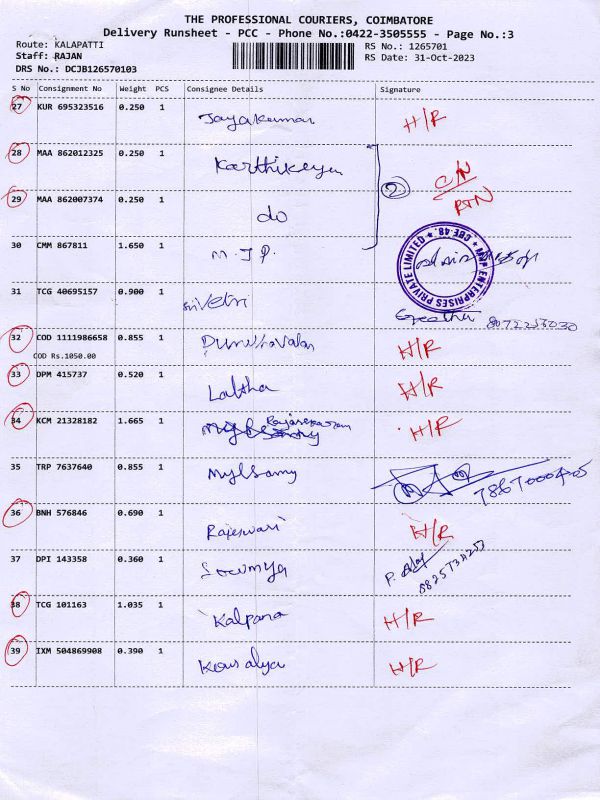 THE PROFESSIONAL COURIERS, COIMBATORE
Delivery Runsheet - PCC - Phone No.:0422-3505555 - Page No.:3
Route: KALAPATTI RS No.: 1265701
Staff: RAJAN RS Date: 31-Oct-2023
DRS No.: DCJB126570103
S No Consignment No Weight PCS Consignee Details Signature
27 KUR 695323516 0.250 1 Jayakumar H/R
28 MAA 862012325 0.250 1 Karthikeyan 2 C/N
29 MAA 862007374 0.250 1 do RTN
30 CMM 867811 1.650 1 M.J.P. MJP ENTERPRISES PRIVATE LIMITED * CBE-48. *
31 TCG 40695157 0.900 1 Srivetri Geetha
32 COD 1111986658 0.855 1 H/R
COD Rs.1050.00
33 DPM 415737 0.520 1 Lalitha H/R
34 KCM 21328182 1.665 1 H/R
35 TRP 7637640 0.855 1 Mylsamy
36 BNH 576846 0.690 1 Rajeswari H/R
37 DPI 143358 0.360 1 Sowmya
38 TCG 101163 1.035 1 Kalpana H/R
39 IXM 504869908 0.390 1 Kousalya H/R